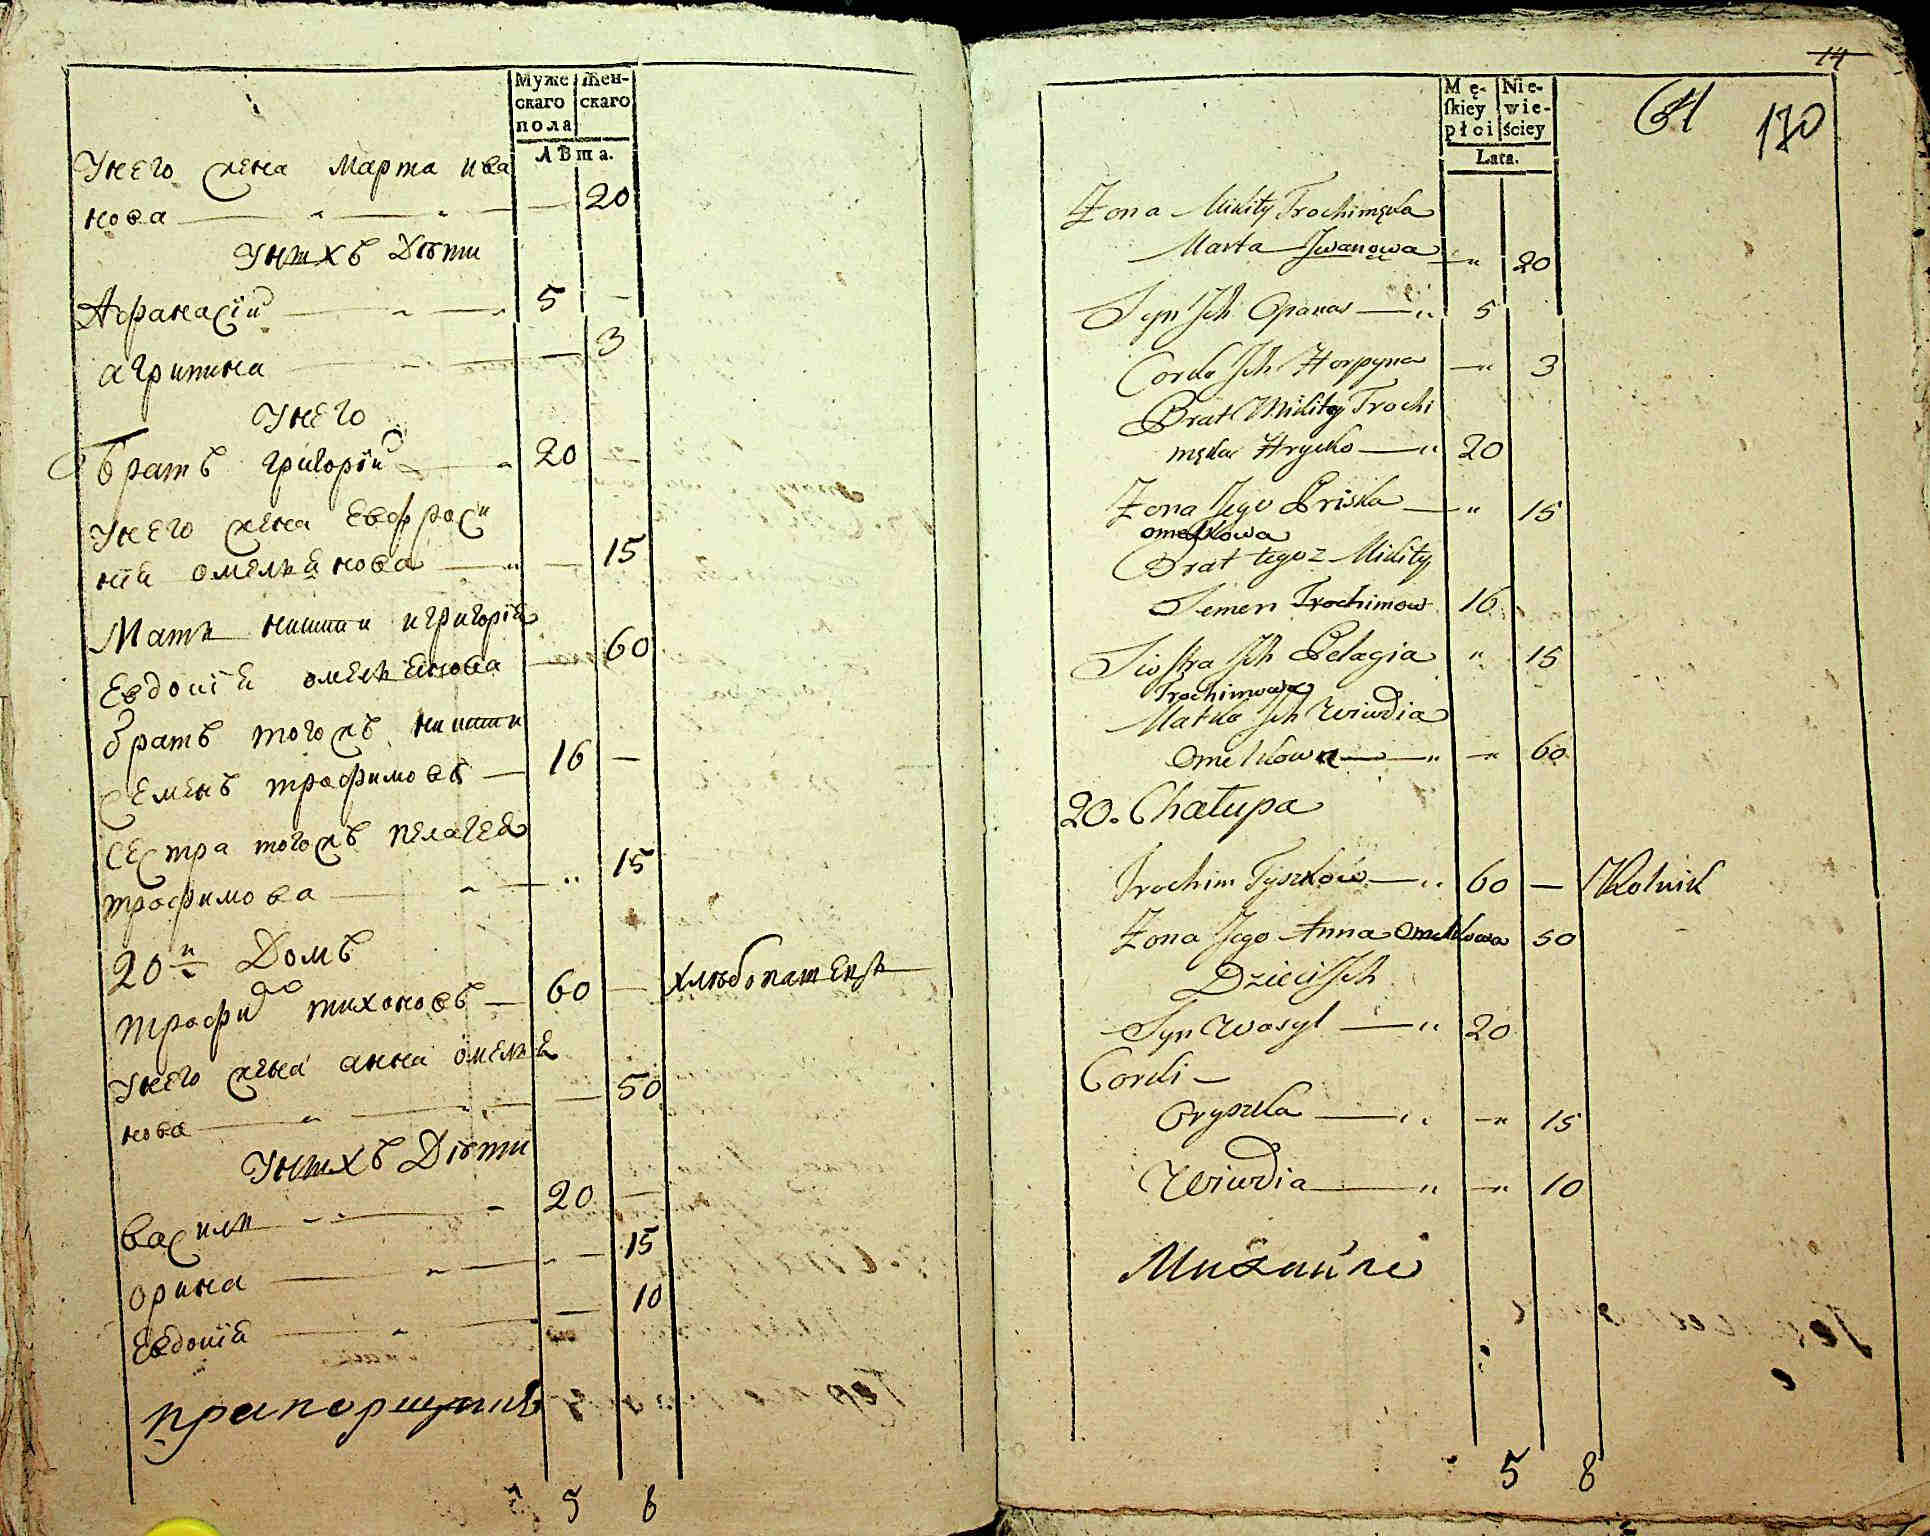 Муже
скаго
пола
Жен-
скаго
Лѣта.
Унего жена Марта ива
нова — 20
Унихъ Дѣти
Афанасіи — 5 —
агрипина — 3
Унего
братъ григорій — 20 —
Унего жена Евфроси
нія омельянова — 15
Мать никити и григорія
Евдокія омельянова — 60
братъ тогожъ никити
Семенъ трофимовъ — 16 —
Сестра тогожъ пелагея
трофимова — 15
20й Домъ
трофим тихоновъ — 60 — хлѣбопашецъ
Унего жена анна омелья
нова — 50
Унихъ Дѣти
василь — 20 —
орина — 15
Евдокія — 10
прапорщикъ
5 8
14
Mę-
skiey
płci
Nie-
wie-
ściey
Lata.
64 170
Żona Mikity Trochimęka
Marta Jwanowa — 20
Syn Jch Opanas — 5
Corka Jch Horpyna — 3
Brat Mikity Trochi
męka Hrycko — 20
Żona Jego Priska — 15
omelkowa
Brat tegoż Mikity
Semen Trochimow 16
Siostra Jch Pelagia 15
Trochimowa
Matka Jch Wiwdia
Omelkowa — 60
20. Chałupa
Trochim Tyszkow — 60 — Rolnik
Żona Jego Anna Omelkowa 50
Dzieci Jch
Syn Wasyl — 20
Corki —
Oryszka — 15
Wiwdia — 10
5 8